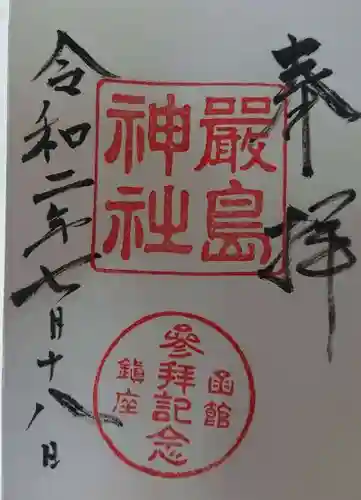 奉拝
嚴島
神社
函館
參拜記念
鎭座
令和二年七月十八日